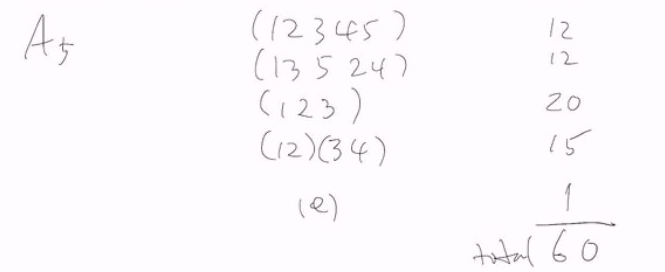 A₅ (12345) 12
(13524) 12
(123) 20
(12)(34) 15
(e) 1
total 60